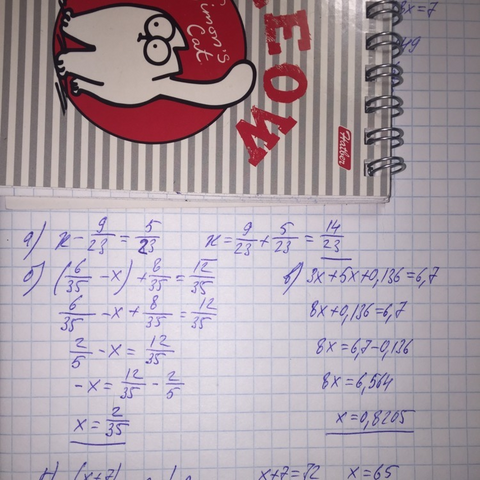 8x=7
49
Simon's
Cat
MEOW
Hatber
а) x - 9/23 = 5/23    x = 9/23 + 5/23 = 14/23
б) (6/35 - x) + 8/35 = 12/35
6/35 - x + 8/35 = 12/35
2/5 - x = 12/35
-x = 12/35 - 2/5
x = 2/35
в) 3x+5x+0,136=6,7
8x+0,136=6,7
8x=6,7-0,136
8x=6,564
x=0,8205
(x+7)
x+7=72    x=65